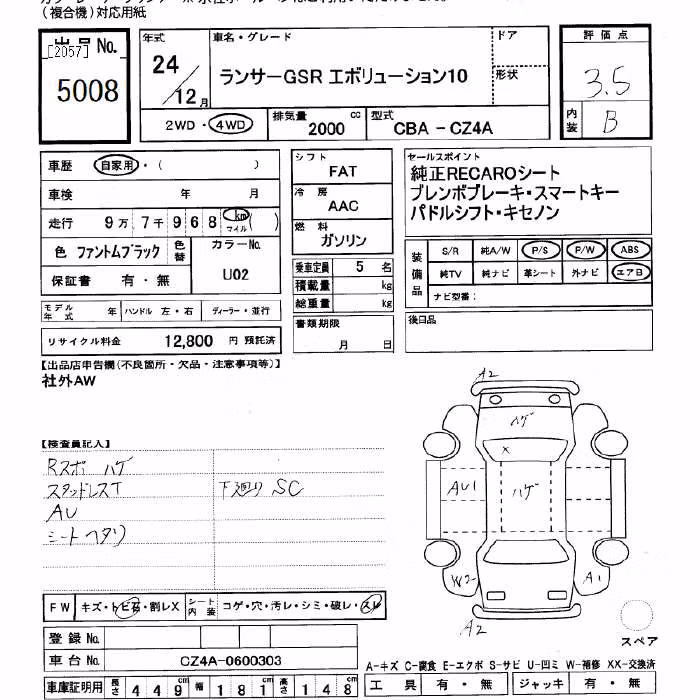 (複合機)対応用紙
出品 No.
[2057]
5008
年式
24/12月
車名・グレード
ランサーGSR エボリューション10
ドア
形状
評価点
3.5
内装
B
2WD・4WD
排気量
2000 cc
型式
CBA-CZ4A
車歴 自家用・( )
車検 年 月
走行 9万 7千 9 6 8 km マイル ( )
色 ファントムブラック
色替
カラーNo.
U02
保証書 有・無
モデル年式 年
ハンドル 左・右
ディーラー・並行
リサイクル料金 12,800 円 預託済
シフト
FAT
冷房
AAC
燃料
ガソリン
乗車定員 5 名
積載量 kg
総重量 kg
書類期限
月 日
セールスポイント
純正RECAROシート
ブレンボブレーキ・スマートキー
パドルシフト・キセノン
装備品
S/R 純A/W P/S P/W ABS
純TV 純ナビ 革シート 外ナビ エアB
ナビ型番:
後日品
【出品店申告欄(不良箇所・欠品・注意事項等)】
社外AW
【検査員記入】
Rスポ ハゲ
スタッドレスT
AU
シートヘタリ
下廻り SC
A2
ハゲ
X
AU1
ハゲ
W2
A1
A2
スペア
FW キズ・トビ石・割レX
シート内装 コゲ・穴・汚レ・シミ・破レ・スレ
登録 No.
車台 No. CZ4A-0600303
車庫証明用 長さ 449 幅 181 高さ 148
A-キズ C-腐食 E-エクボ S-サビ U-凹ミ W-補修 XX-交換済
工具 有・無 ジャッキ 有・無